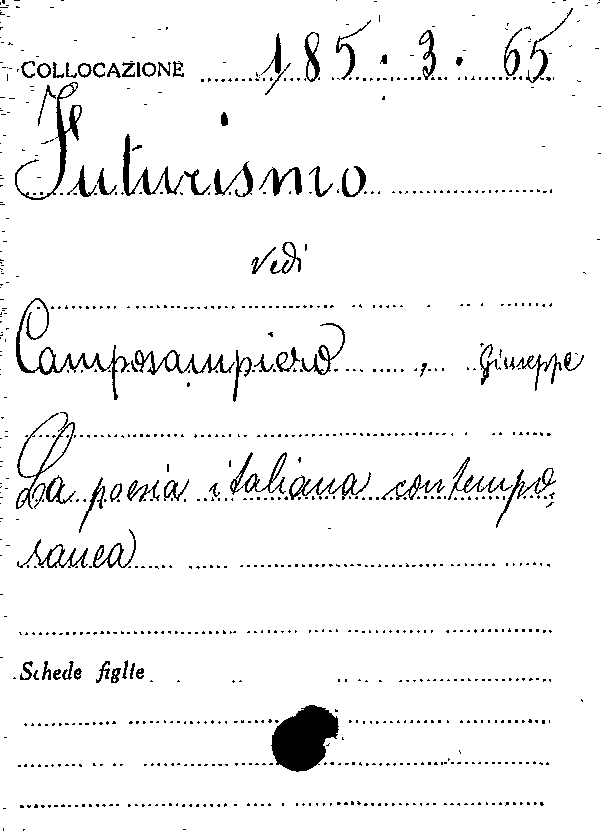 COLLOCAZIONE 185.3.65
Futurismo
vedi
Camposampiero, Giuseppe
La poesia italiana contempo-
ranea
Schede figlie